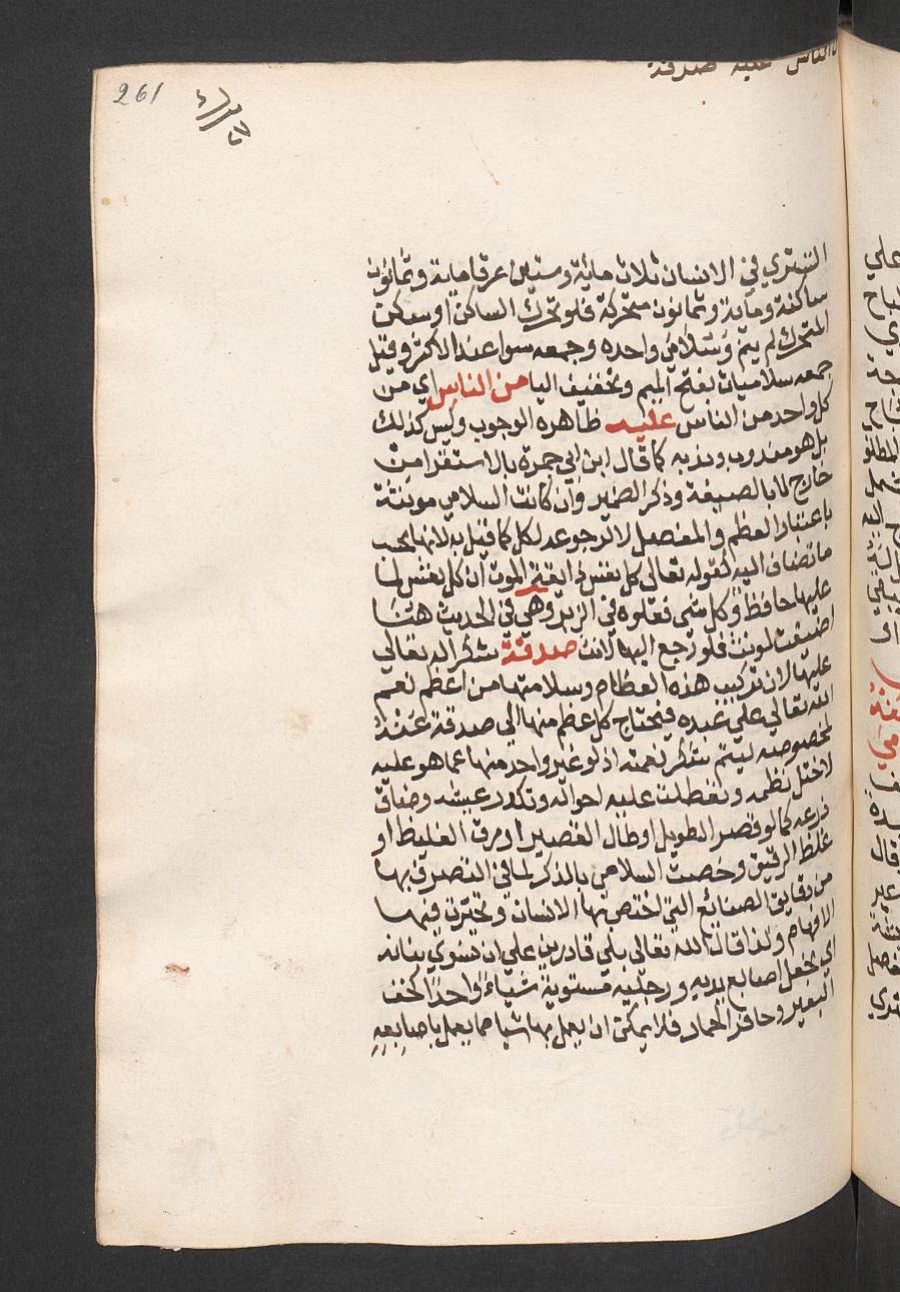 الناس عليه صدقة
261
التستري في الانسان ثلاث ماية وستين عرقا ماية وثمانون
ساكنة وماية وثمانون متحركة فلو تحرك الساكن او سكن
المتحرك لم ينم وسلامى واحده وجمعه سوا عند الاكثر وقيل
جمعه سلاميات بفتح الميم وتخفيف اليا من الناس اي من
كل واحد من الناس عليه ظاهره الوجوب وليس كذلك
بل هو مندوب وندبه كما قال ابن ابي جمرة بالاستقرا من
خارج لا بالصيغة وذكر الضمير وان كانت السلامى مونثة
باعتبار العظم والمفصل لا لرجوعه لكل كما قيل به لانها بحسب
ما تضاف اليه كقوله تعالى كل نفس ذايقة الموت ان كل نفس لما
عليها حافظ وكل شي فعلوه في الزبر وهي في الحديث هنا
اضيفت لمونث فلو رجع اليها لانث صدقة شكرا لله تعالى
عليها لان تركيب هذه العظام وسلامتها من اعظم نعم
الله تعالى على عبده فيحتاج كل عظم منها الى صدقة عنه
لخصوصه ليتم شكر نعمته اذ لو غير واحد منها عما هو عليه
لاختل نظمه وتعطلت عليه احواله وتكدر عيشه وضاق
ذرعه كما لو قصر الطويل او طال القصير او رق الغليظ او
غلظ الرقيق وخصت السلامى بالذكر لما في التصرف بها
من دقايق الصنايع التي اختص بها الانسان وتحيرت فيها
الافهام ولذا قال الله تعالى بلى قادرين على ان نسوي بنانه
اي نجعل اصابع يديه ورجليه مستوية شياء واحدا كخف
البعير وحافر الحمار فلا يمكن ان يعمل بها شيا مما يعمل باصابعه